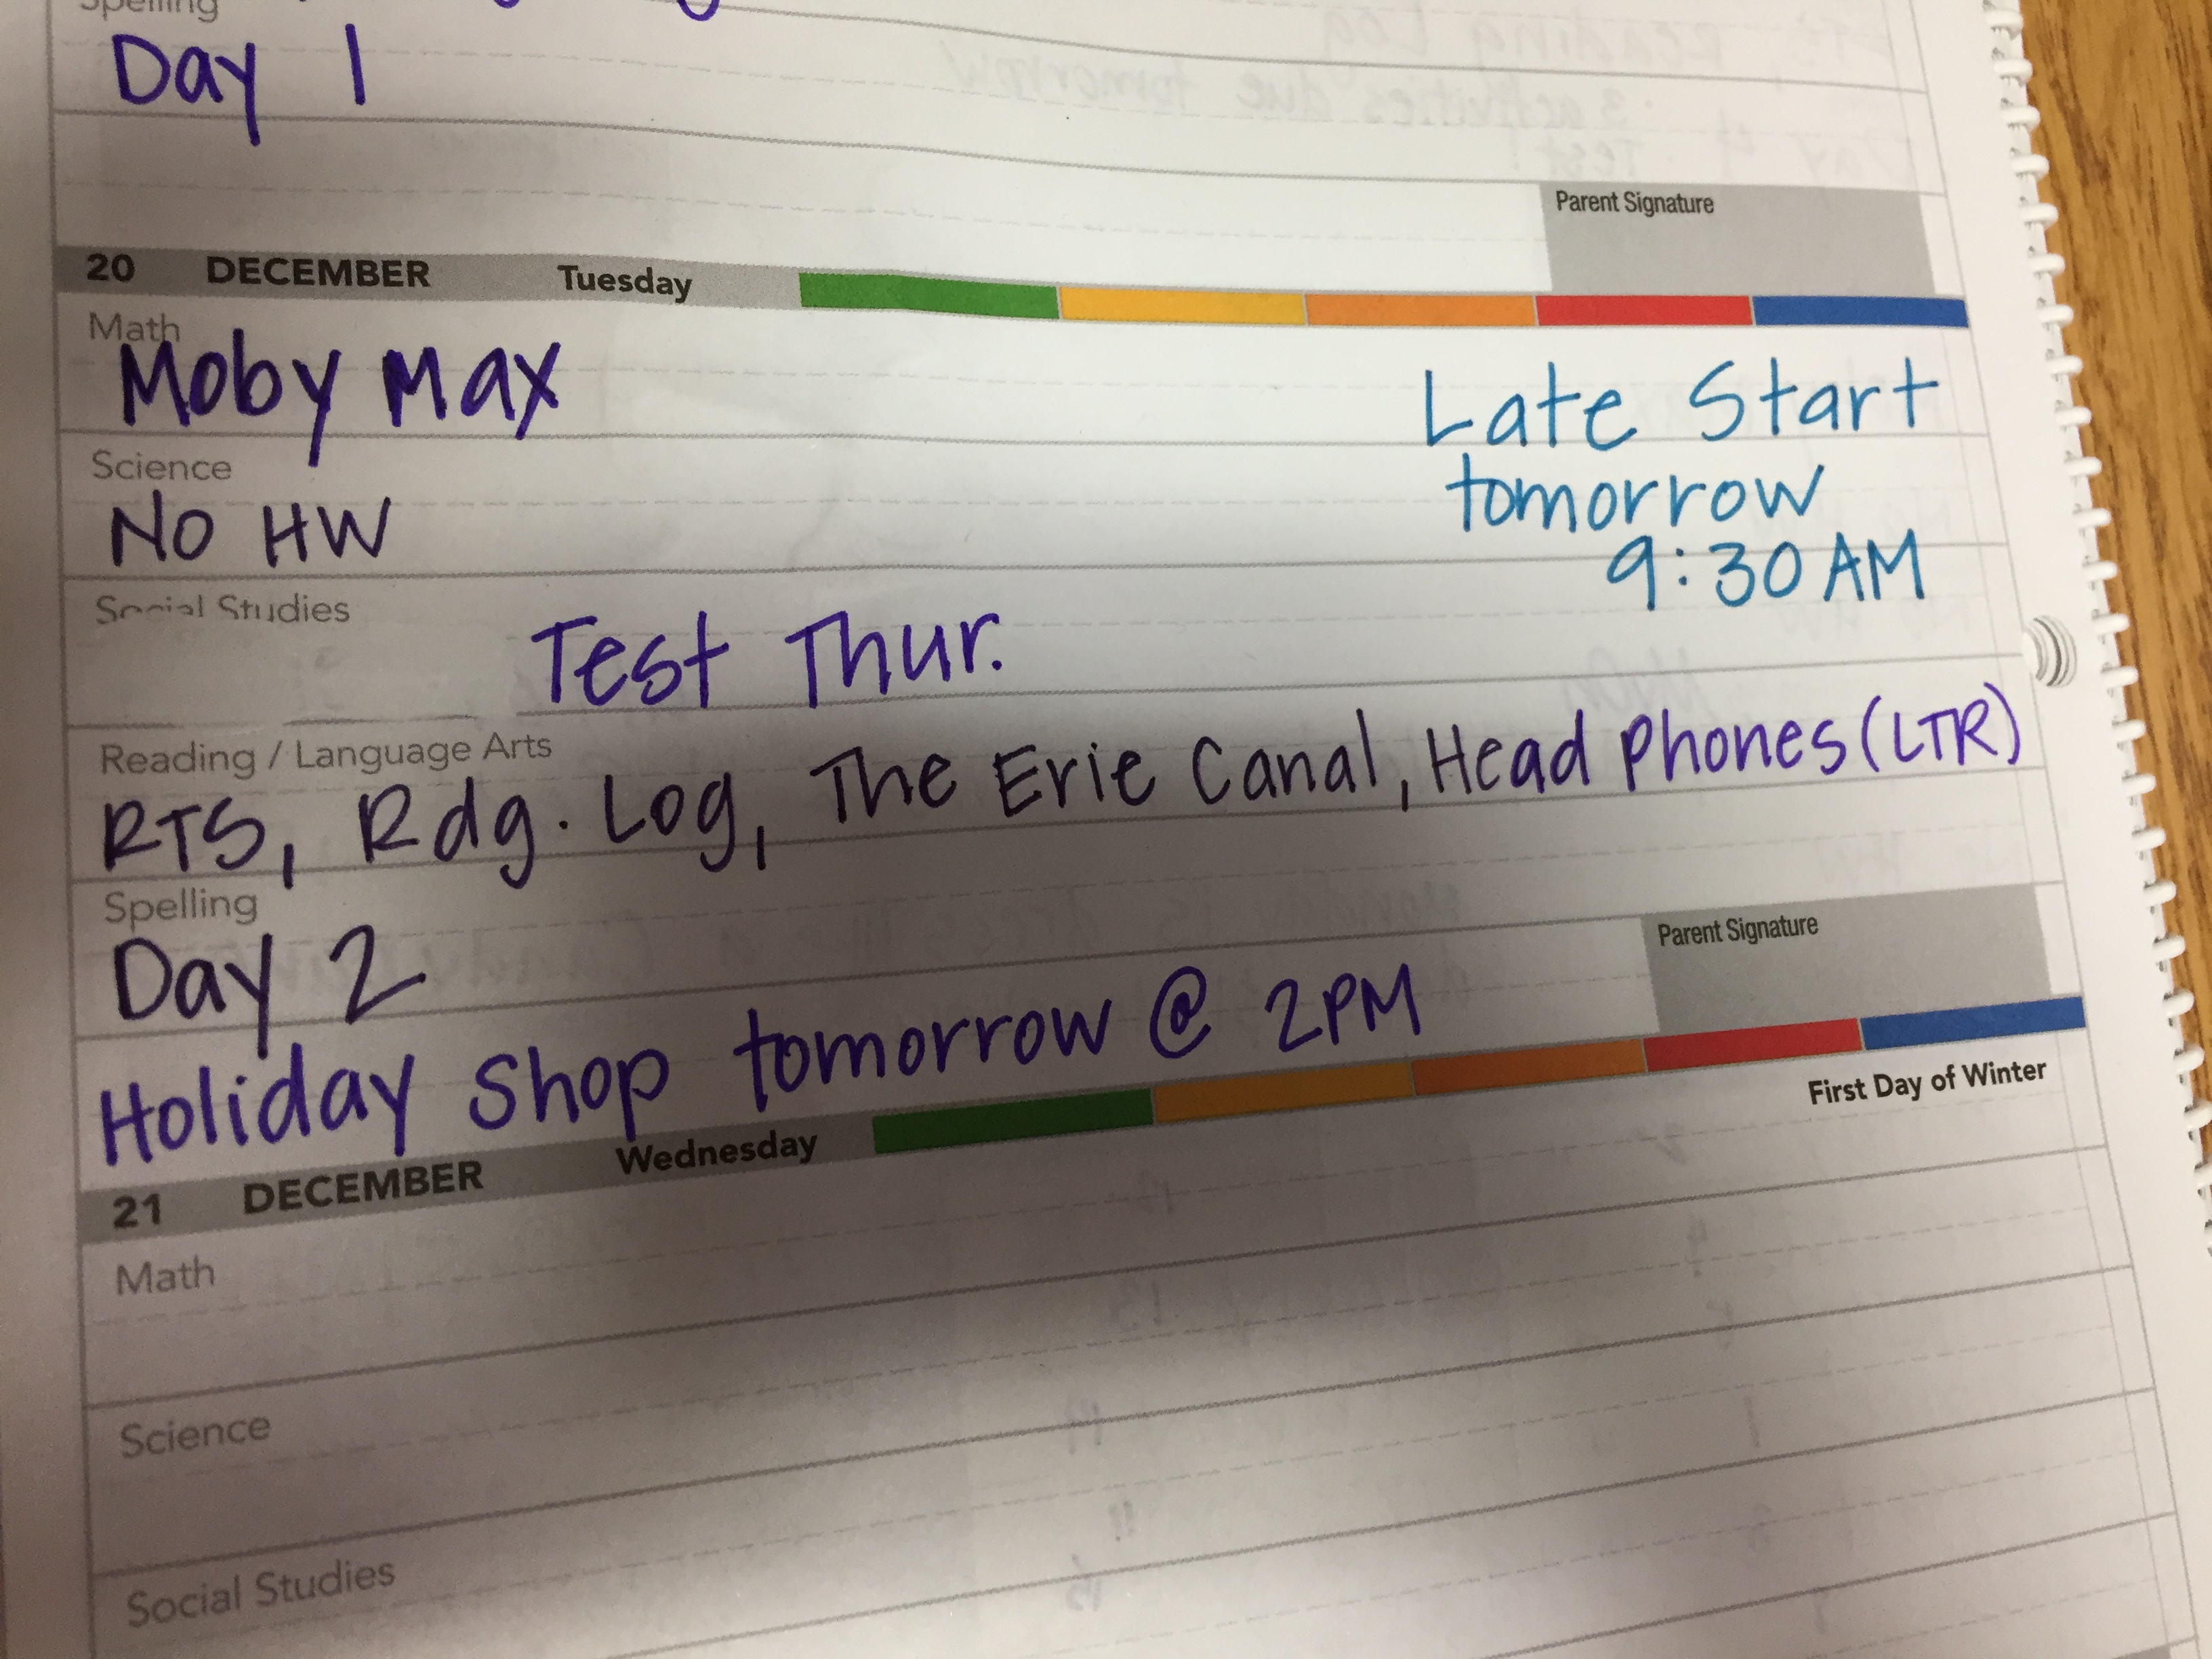 Spelling
Day 1
Parent Signature
20 DECEMBER Tuesday
Math
Moby Max
Late Start
tomorrow
9:30 AM
Science
No HW
Social Studies
Test Thur.
Reading / Language Arts
RTS, Rdg. Log, The Erie Canal, Head phones (LTR)
Spelling
Day 2
Parent Signature
Holiday Shop tomorrow @ 2PM
21 DECEMBER Wednesday
First Day of Winter
Math
Science
Social Studies